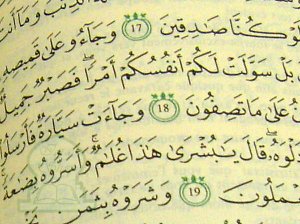 وَلَوْ كُنَّا صَٰدِقِينَ 17 وَجَآءُو عَلَىٰ قَمِيصِهِ
بَلْ سَوَّلَتْ لَكُمْ أَنفُسُكُمْ أَمْرًا فَصَبْرٌ جَمِيلٌ
عَلَىٰ مَا تَصِفُونَ 18 وَجَآءَتْ سَيَّارَةٌ فَأَرْسَلُوا
دَلْوَهُۥ قَالَ يَٰبُشْرَىٰ هَٰذَا غُلَٰمٌ وَأَسَرُّوهُ بِضَٰعَةً
يَعْمَلُونَ 19 وَشَرَوْهُ بِثَمَنٍ